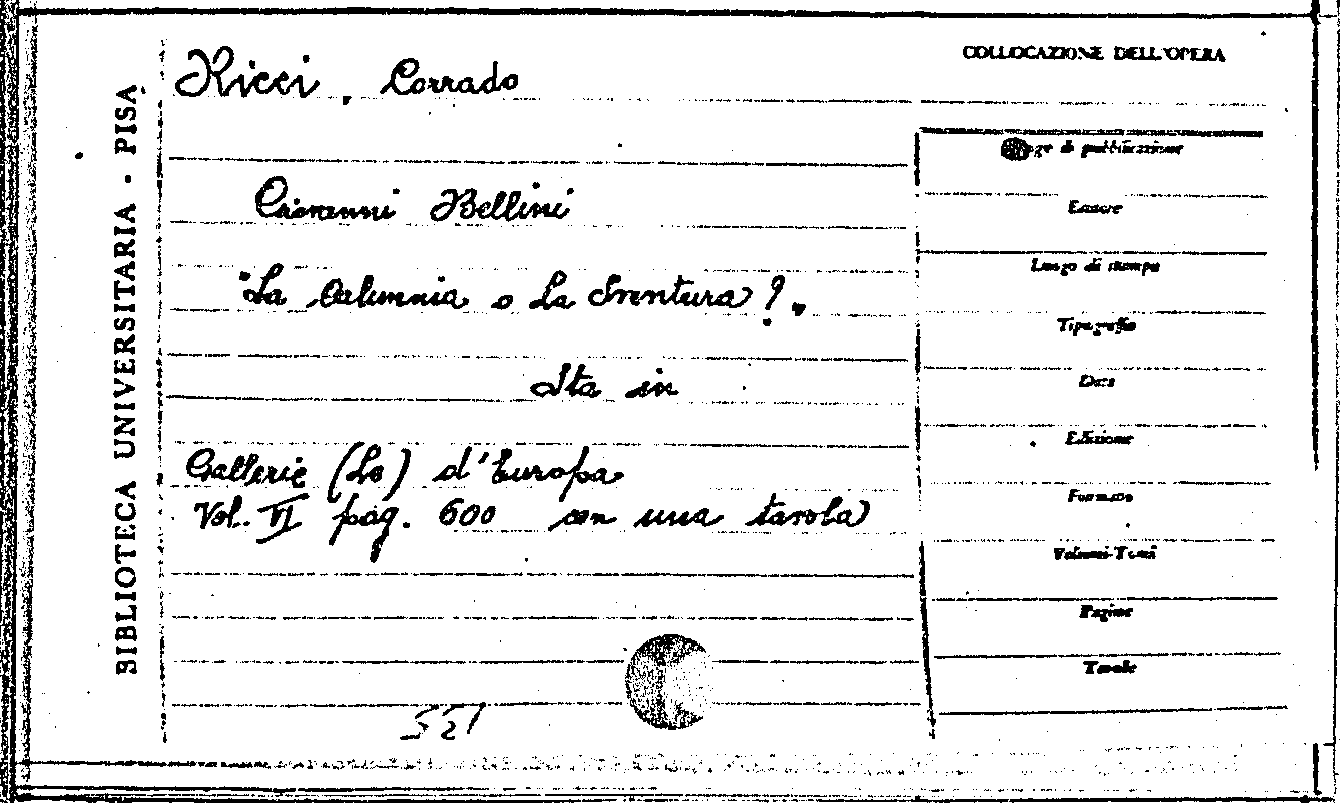 BIBLIOTECA UNIVERSITARIA - PISA
Ricci, Corrado
Giovanni Bellini
"La Calunnia o la Sventura?"
Sta in
Gallerie (Le) d'Europa
Vol. VI pag. 600 con una tavola
551
COLLOCAZIONE DELL'OPERA
di pubblicazione
Editore
Luogo di stampa
Tipografia
Data
Edizione
Formato
Volumi-Tomi
Pagine
Tavole